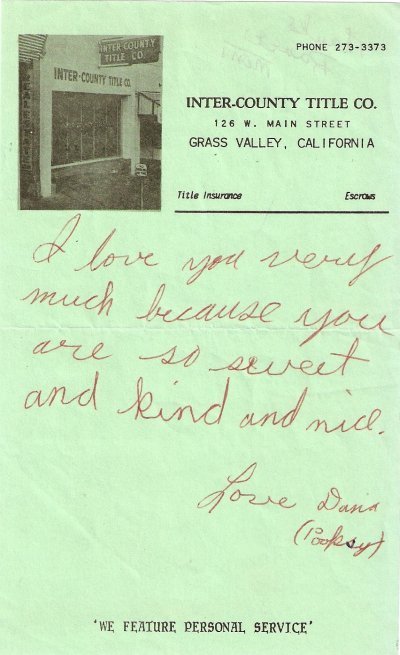 PHONE 273-3373
INTER COUNTY
TITLE CO.
INTER-COUNTY TITLE CO.
INTER-COUNTY TITLE CO.
126 W. MAIN STREET
GRASS VALLEY, CALIFORNIA
Title Insurance Escrows
I love you very
much because you
are so sweet
and kind and nice.
Love Dana
(Pooksy)
'WE FEATURE PERSONAL SERVICE'